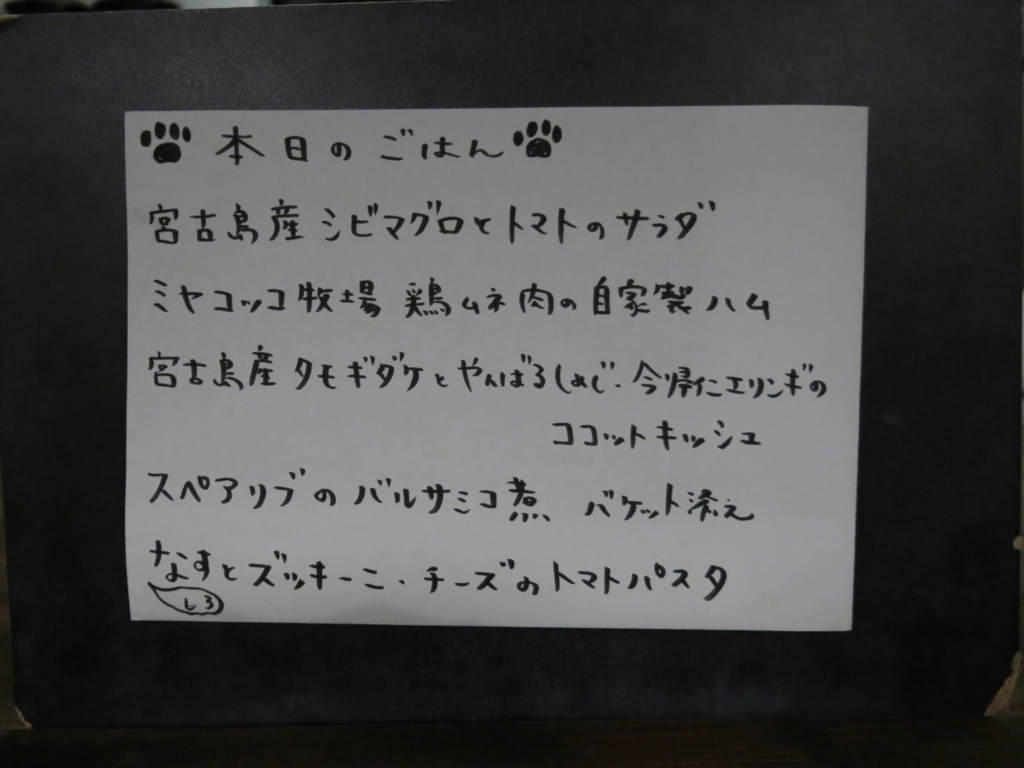 本日のごはん
宮古島産 シビマグロとトマトのサラダ
ミヤコッコ牧場 鶏ムネ肉の自家製ハム
宮古島産 タモギダケとやんばるしめじ・今帰仁エリンギの
ココットキッシュ
スペアリブのバルサミコ煮 バケット添え
なすとズッキーニ・チーズのトマトパスタ
しろ